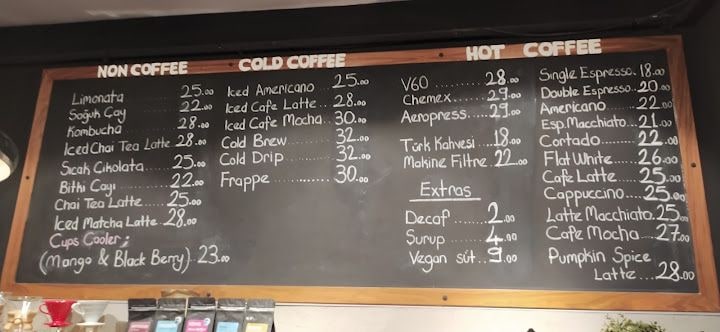 NON COFFEE
Limonata 25.00
Soğuk Çay 22.00
Kombucha 28.00
Iced Chai Tea Latte 28.00
Sıcak Çikolata 25.00
Bitki Çayı 22.00
Chai Tea Latte 25.00
Iced Matcha Latte 28.00
Cups Cooler;
(Mango & Black Berry) 23.00
COLD COFFEE
Iced Americano 25.00
Iced Cafe Latte 28.00
Iced Cafe Mocha 30.00
Cold Brew 32.00
Cold Drip 32.00
Frappe 30.00
HOT COFFEE
V60 28.00
Chemex 29.00
Aeropress 29.00
Türk Kahvesi 18.00
Makine Filtre 22.00
Extras
Decaf 2.00
Şurup 4.00
Vegan süt 9.00
Single Espresso 18.00
Double Espresso 20.00
Americano 22.00
Esp. Macchiato 21.00
Cortado 22.00
Flat White 26.00
Cafe Latte 25.00
Cappuccino 25.00
Latte Macchiato 25.00
Cafe Mocha 27.00
Pumpkin Spice
Latte 28.00